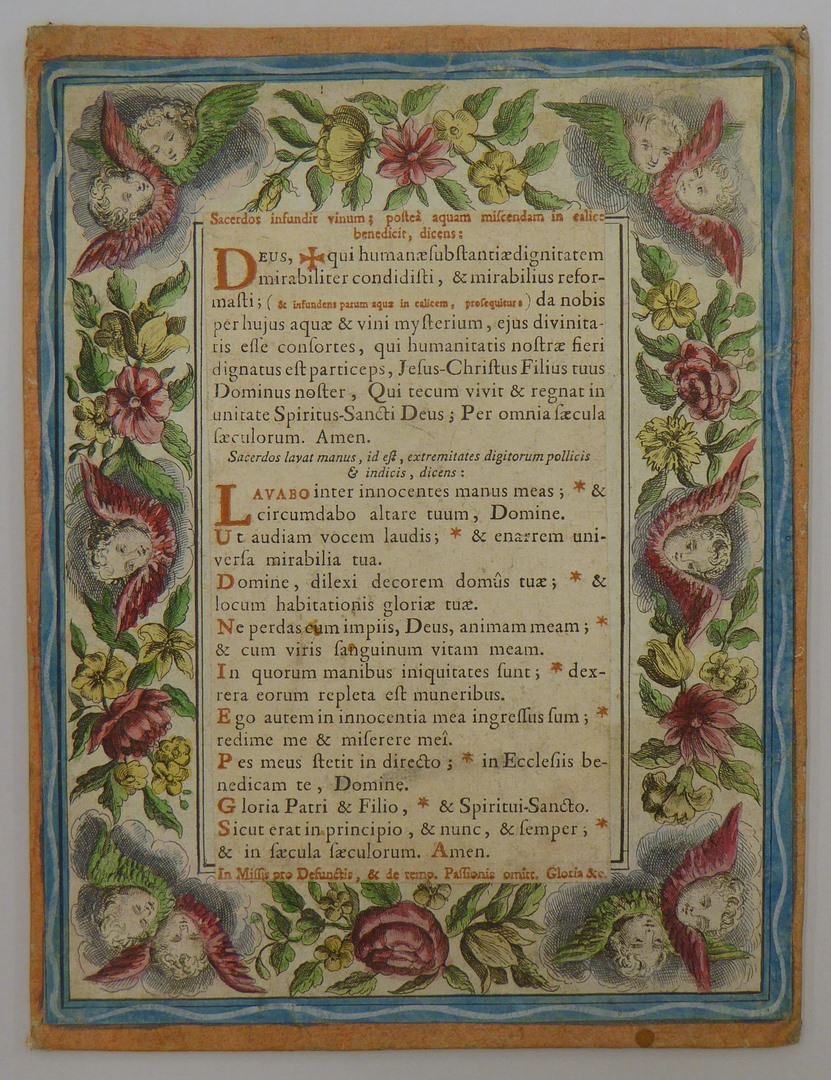 Sacerdos infundit vinum; posteà aquam miſcendam in calice
benedicit, dicens:
DEUS, ✠ qui humanæ ſubſtantiæ dignitatem
mirabiliter condidiſti, & mirabilius refor-
maſti; (& infundens parum aquæ in calicem, proſequitur:) da nobis
per hujus aquæ & vini myſterium, ejus divinita-
tis eſſe conſortes, qui humanitatis noſtræ fieri
dignatus eſt particeps, Jeſus-Chriſtus Filius tuus
Dominus noſter, Qui tecum vivit & regnat in
unitate Spiritus-Sancti Deus; Per omnia ſæcula
ſæculorum. Amen.
Sacerdos lavat manus, id eſt, extremitates digitorum pollicis
& indicis, dicens:
LAVABO inter innocentes manus meas; * &
circumdabo altare tuum, Domine.
Ut audiam vocem laudis; * & enarrem uni-
verſa mirabilia tua.
Domine, dilexi decorem domûs tuæ; * &
locum habitationis gloriæ tuæ.
Ne perdas cum impiis, Deus, animam meam; *
& cum viris ſanguinum vitam meam.
In quorum manibus iniquitates ſunt; * dex-
tera eorum repleta eſt muneribus.
Ego autem in innocentia mea ingreſſus ſum; *
redime me & miſerere meî.
Pes meus ſtetit in directo; * in Eccleſiis be-
nedicam te, Domine.
Gloria Patri & Filio, * & Spiritui-Sancto.
Sicut erat in principio, & nunc, & ſemper; *
& in ſæcula ſæculorum. Amen.
In Miſſis pro Defunctis, & de temp. Paſſionis omitt. Gloria &c.